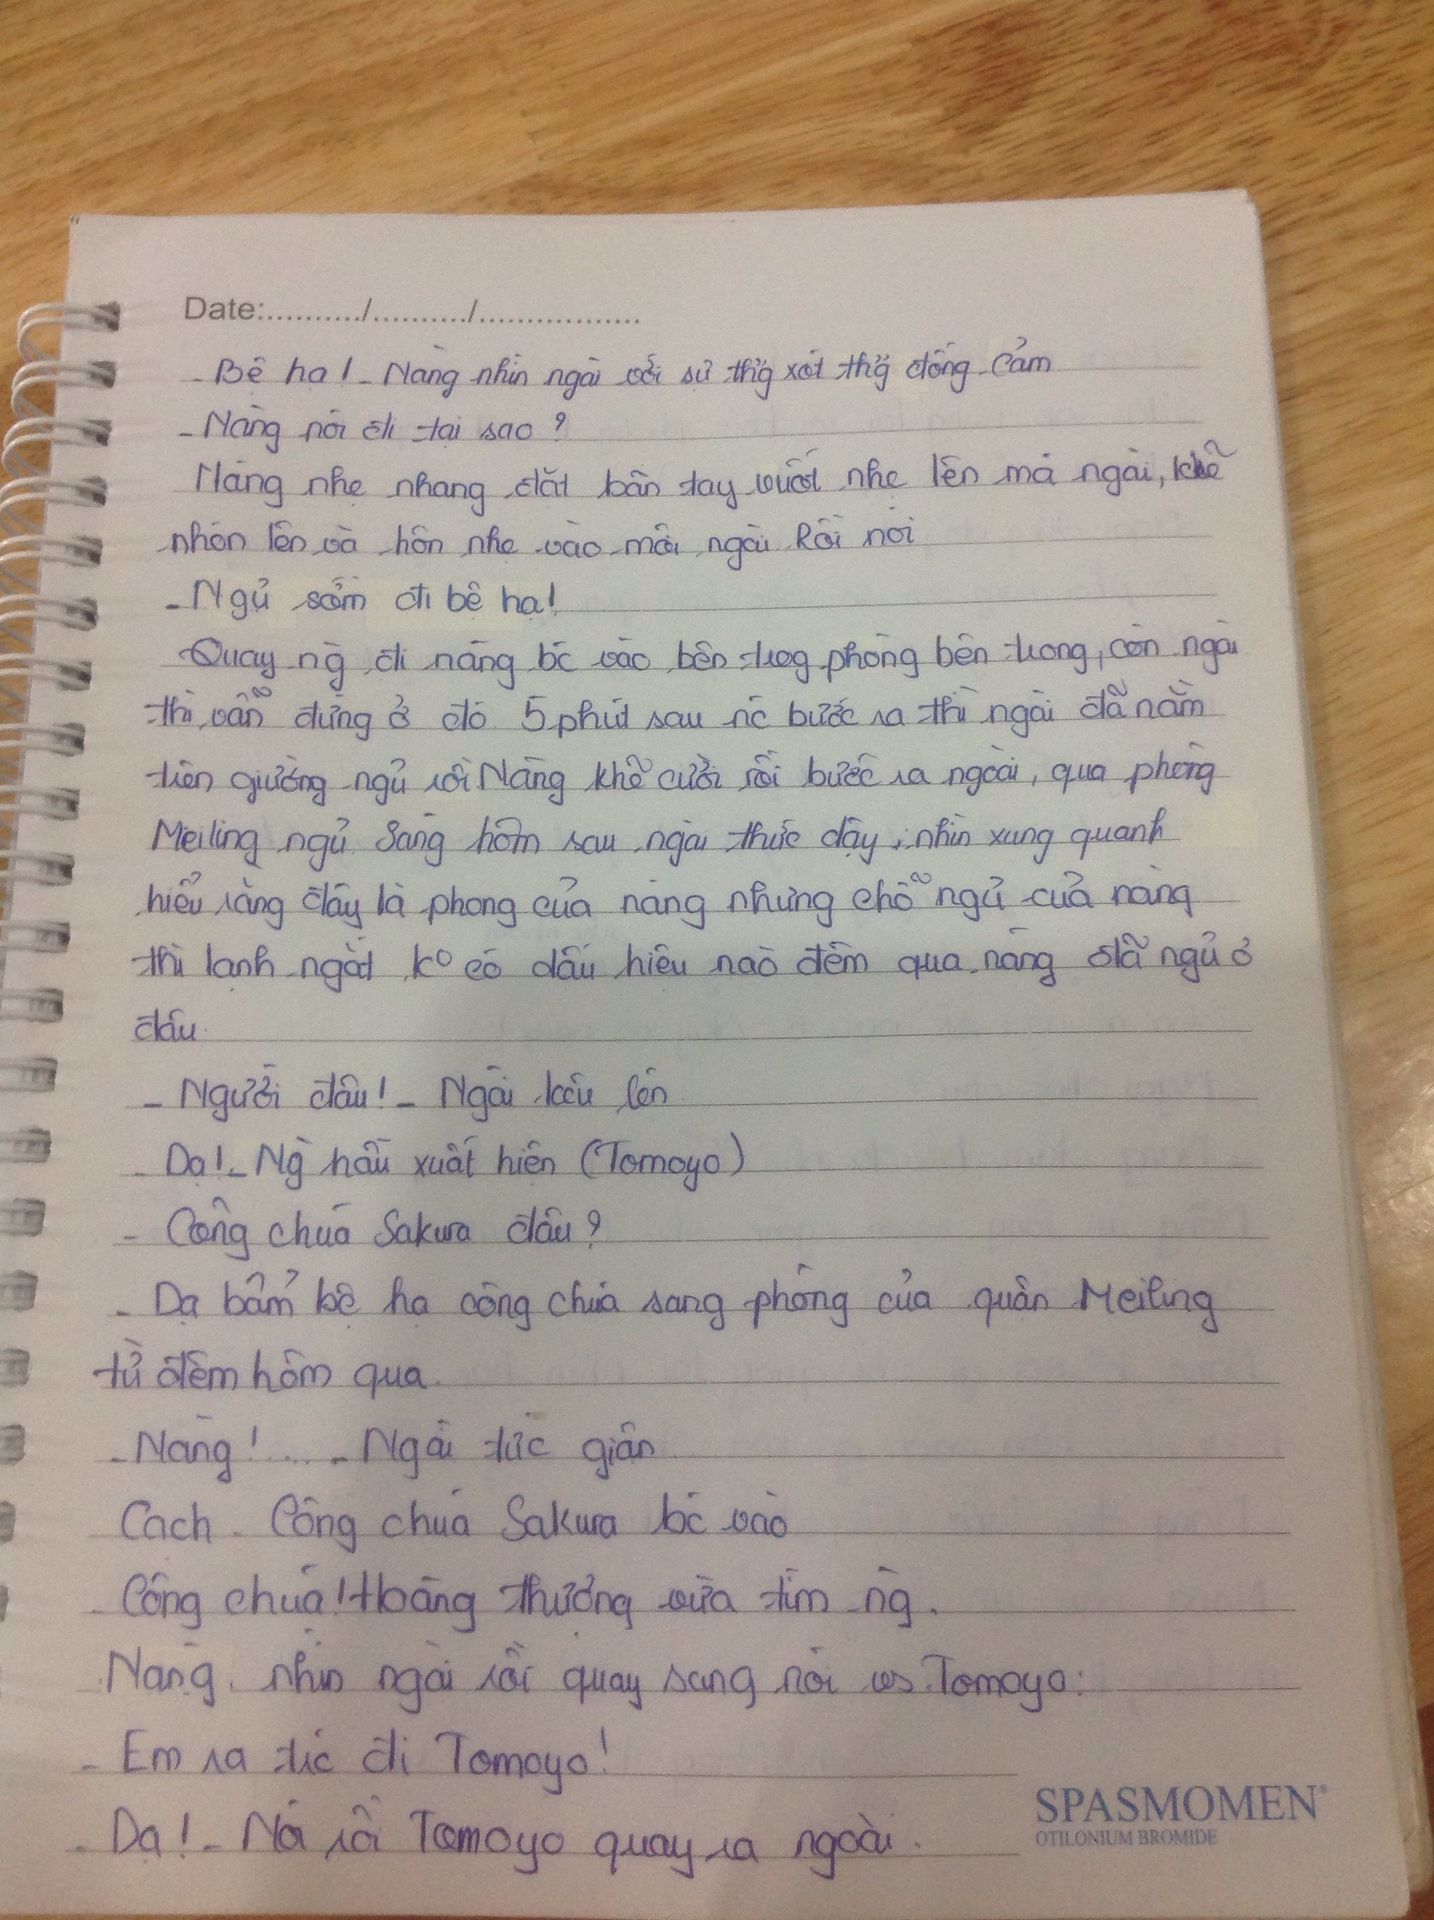 Date:........../........../.................
- Bệ hạ! - Nàng nhìn ngài với sự thg xót thg đồng cảm
- Nàng nói đi tại sao?
Nàng nhẹ nhang đặt bàn tay vuốt nhẹ lên má ngài, khẽ
nhón lên và hôn nhẹ vào môi ngài Rồi nói
- Ngủ sớm đi bệ hạ!
Quay ng` đi nàng bc vào bên trog phòng bên trong, còn ngài
thì vẫn đứng ở đó 5 phút sau bước ra thì ngài đã nằm
trên giường ngủ rồi Nàng khẽ cười rồi bước ra ngoài, qua phòng
Meiling ngủ Sáng hôm sau ngài thức dậy, nhìn xung quanh
hiểu rằng đây là phong của nàng nhưng chỗ ngủ của nàng
thì lạnh ngắt kº có dấu hiệu nào đêm qua nàng đã ngủ ở
đâu
- Người đâu! - Ngài kêu lên
- Dạ! - Ng` hầu xuất hiện (Tomoyo)
- Công chúa Sakura đâu?
- Dạ bẩm bệ hạ công chúa sang phòng của quận Meiling
từ đêm hôm qua.
- Nàng! .... - Ngài tức giận
Cạch. Công chúa Sakura bc vào
- Công chúa! Hoàng thượng vừa tìm ng`.
Nàng nhìn ngài rồi quay sang nói vs Tomoyo:
- Em ra trc đi Tomoyo!
- Dạ! - Nói rồi Tomoyo quay ra ngoài.
SPASMOMEN®
OTILONIUM BROMIDE